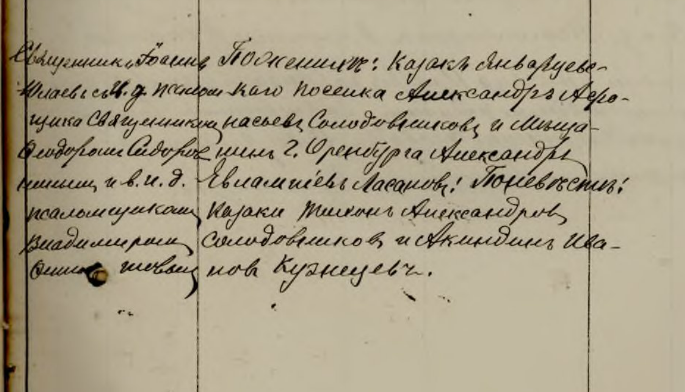 Священникъ Іоаннъ
съ и. д. псалом-
щика Священникомъ
Ѳеодоромъ
и в. и. д.
псаломщикомъ
Владимиромъ
По женихѣ: Казакъ Январцевс-
каго поселка Александръ Афо-
насьевъ Солодовниковъ и Мѣща-
нинъ г. Оренбурга Александръ
Евлампіевъ Ласановъ; По невѣстѣ:
Казаки Тихонъ Александровъ
Солодовниковъ и Акиндинъ Ива-
новъ Кузнецовъ.